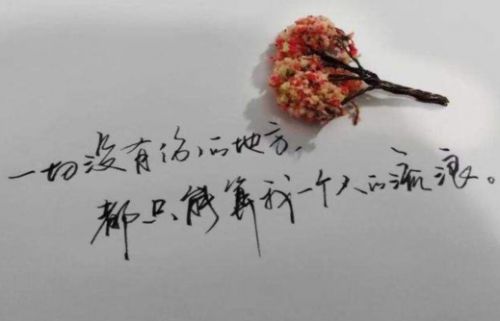 一切没有你的地方,
都只能算我一个人的流浪。